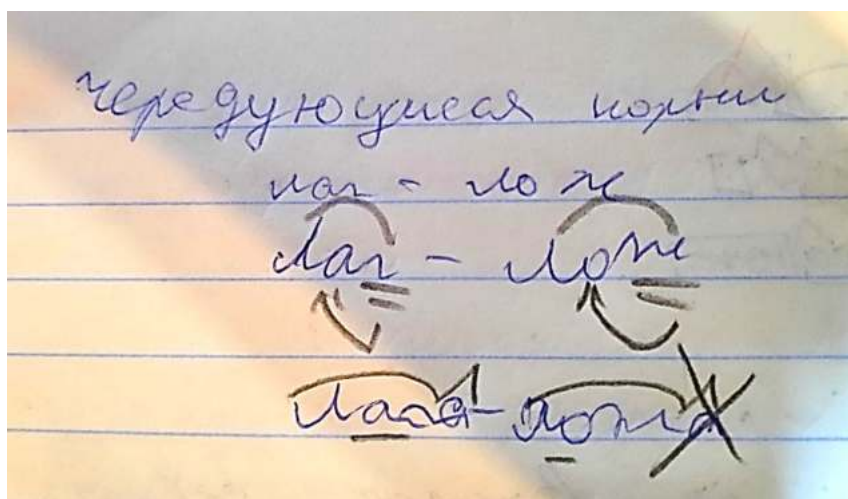 Чередующиеся корни
лаг - лож
Лаг - Лож
Лага - ложа